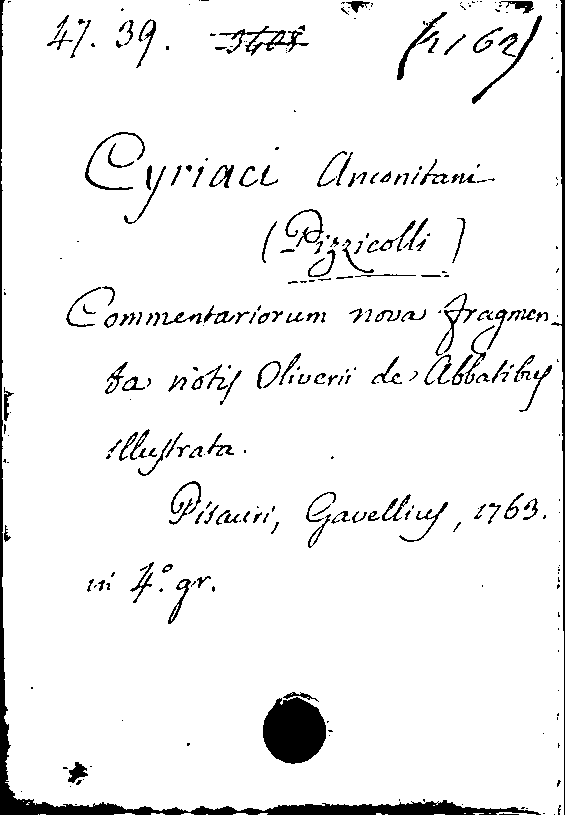 47. 39. 3408 (4162)
Cyriaci Anconitani
(Pizzicolli)
Commentariorum nova fragmen-
ta notis Oliverii de Abbatibus
illustrata.
Pisauri, Gavellius, 1763.
in 4.° gr.